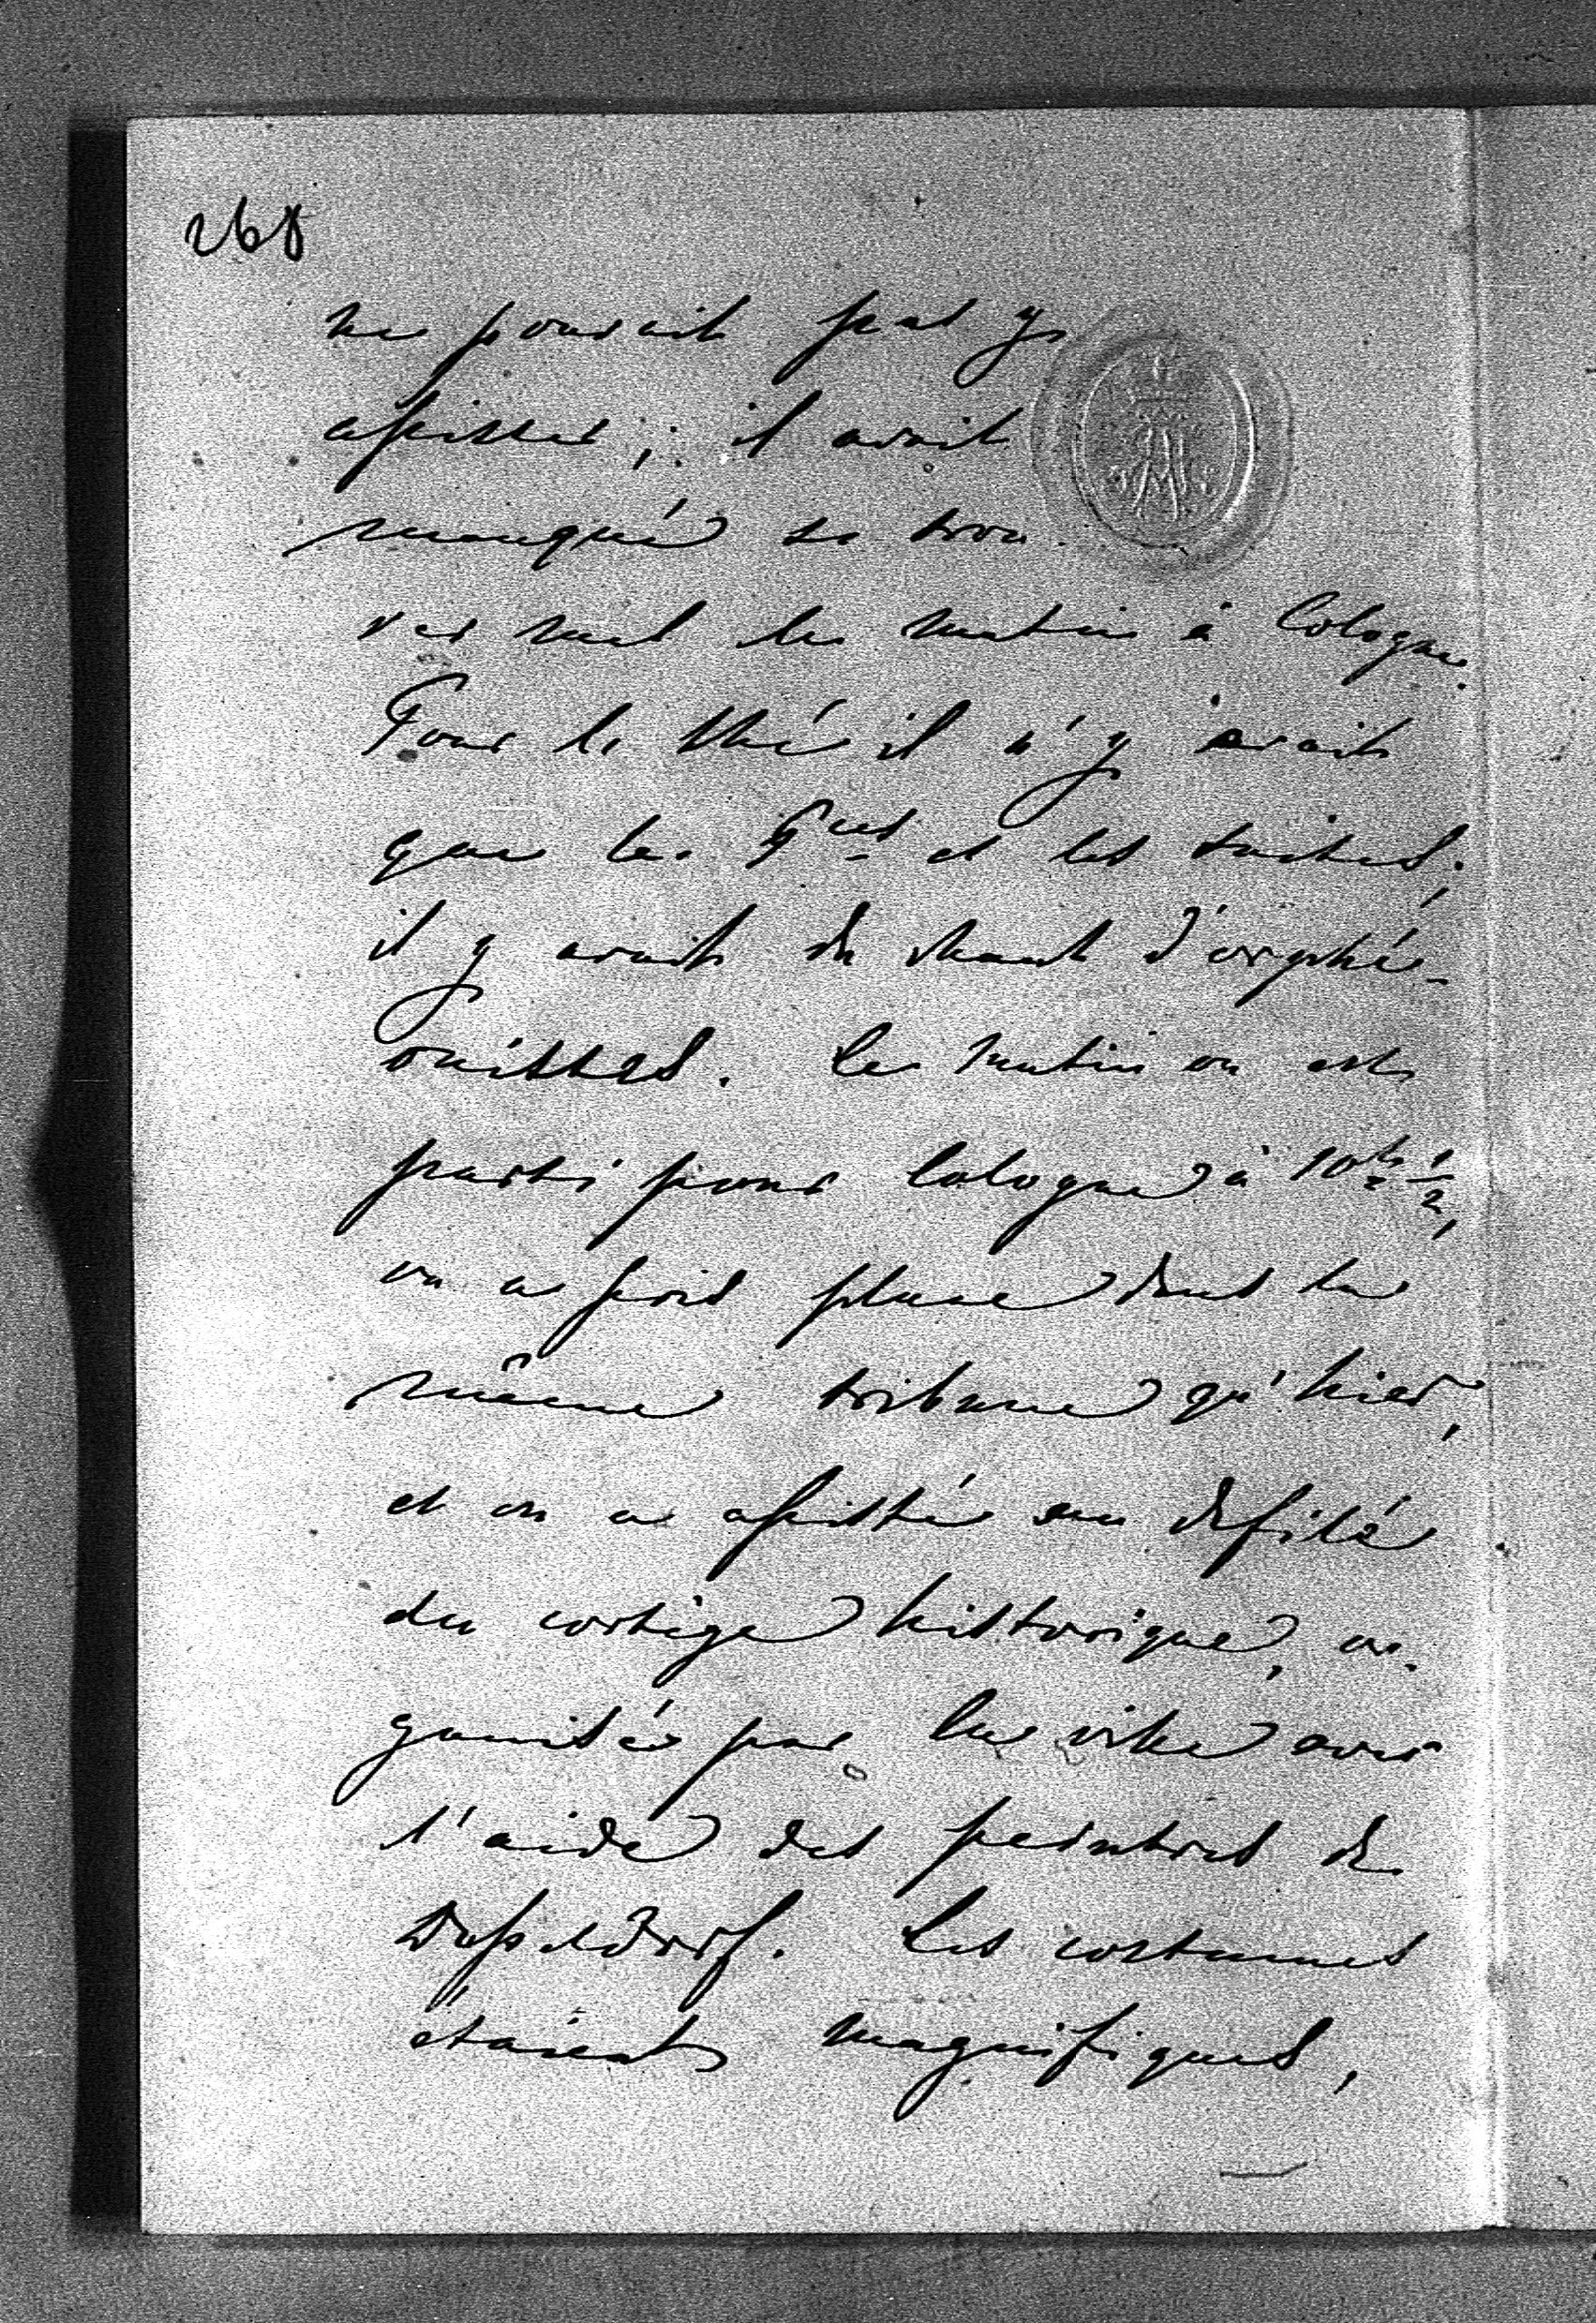 268
ne pouvait pas y
assister; il avait
manqué se trou-
ver mal le matin à Cologne.
Pour le thé il n'y avait
que les Pces et les suites;
il y avait du chant d'orphé-
onistes. Le matin on est
parti pour Cologne à 10h 1/2,
on a pris place dans la
même tribune qu'hier,
et on a assisté au défilé
du cortège historique, or-
ganisé par la ville avec
l'aide des peintres de
Dusseldorf. Les costumes
étaient magnifiques,